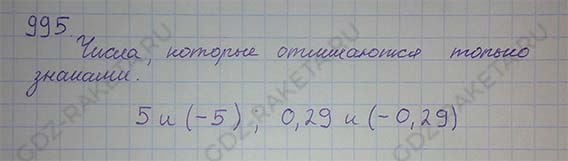 995
Числа, которые отличаются только
знаками.
5 и (-5) ; 0,29 и (-0,29)
GDZ-RAKETA.RU
GDZ-RAKETA.RU
GDZ-RAKETA.RU